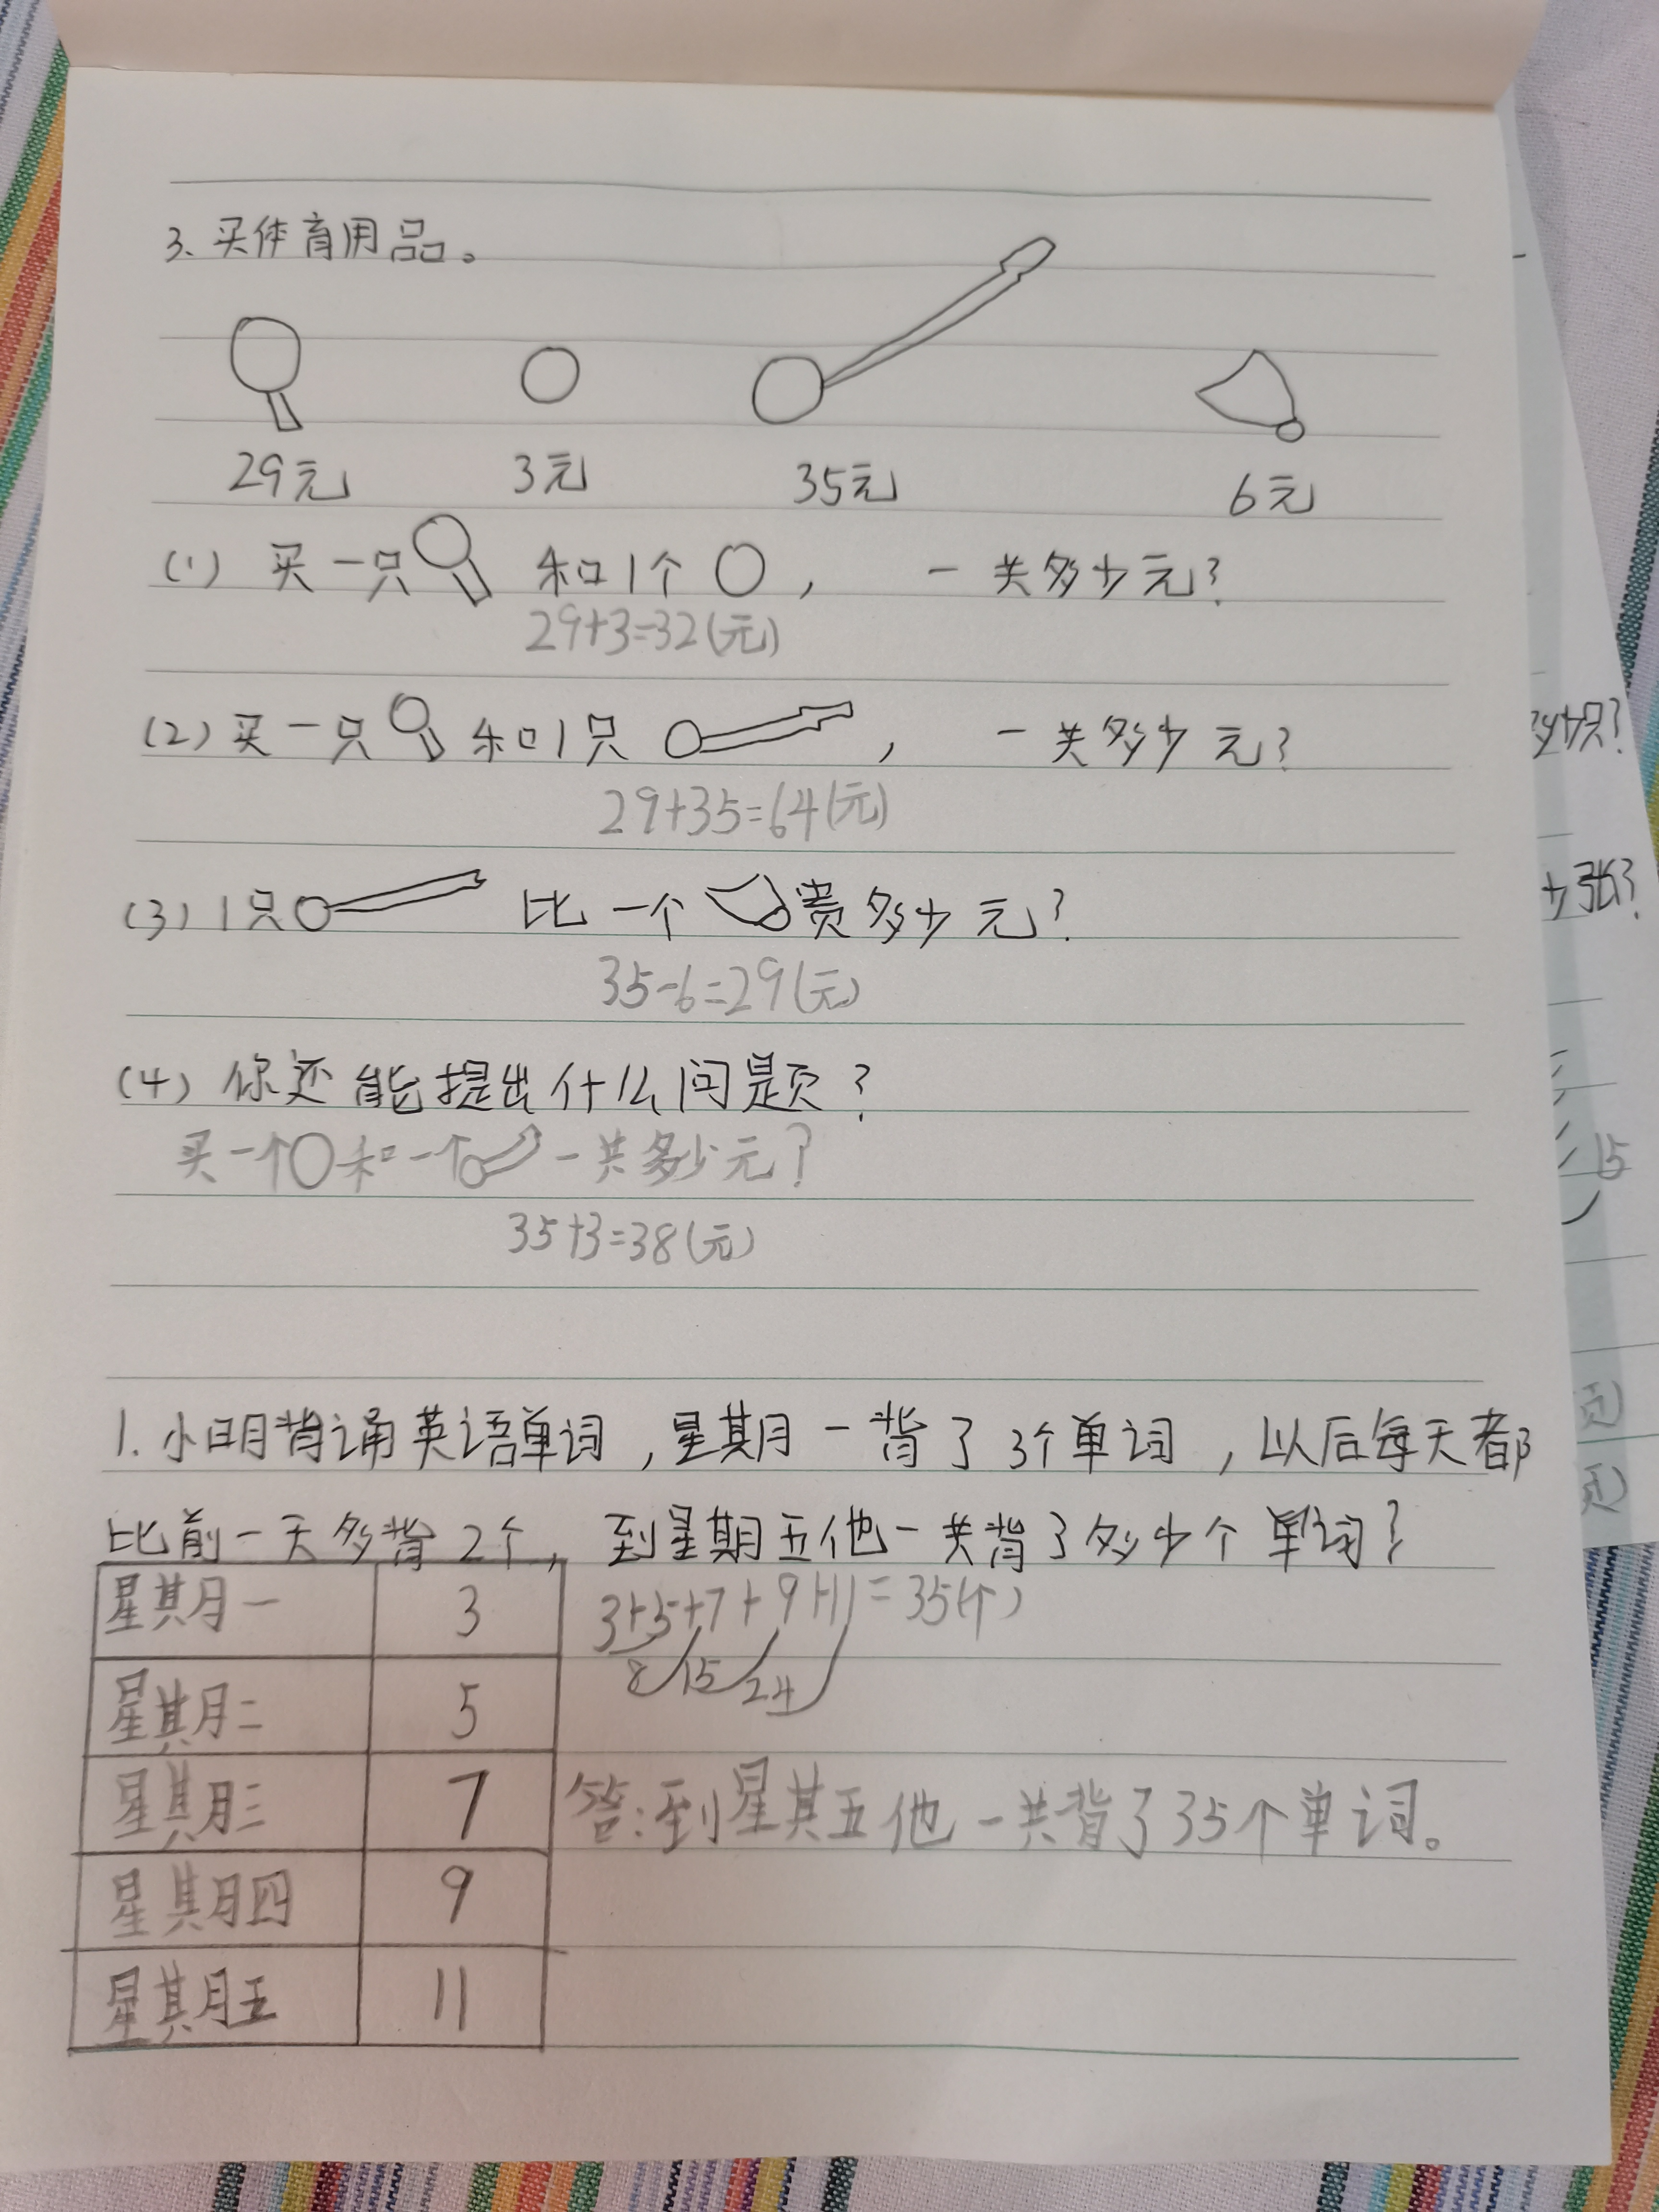 3、买体育用品。
29元 3元 35元 6元
(1) 买一只 和1个 , 一共多少元?
29+3=32(元)
(2) 买一只 和1只 , 一共多少元?
29+35=64(元)
(3) 1只 比一个 贵多少元?
35-6=29(元)
(4) 你还能提出什么问题?
买一个 和一个 一共多少元?
35+3=38(元)
1. 小明背诵英语单词,星期一背了3个单词,以后每天都
比前一天多背2个, 到星期五他一共背了多少个单词?
星期一 3 3+5+7+9+11=35(个)
8 15 24
星期二 5
星期三 7 答:到星期五他一共背了35个单词。
星期四 9
星期五 11
多少只?
少张?
15
页)
页)